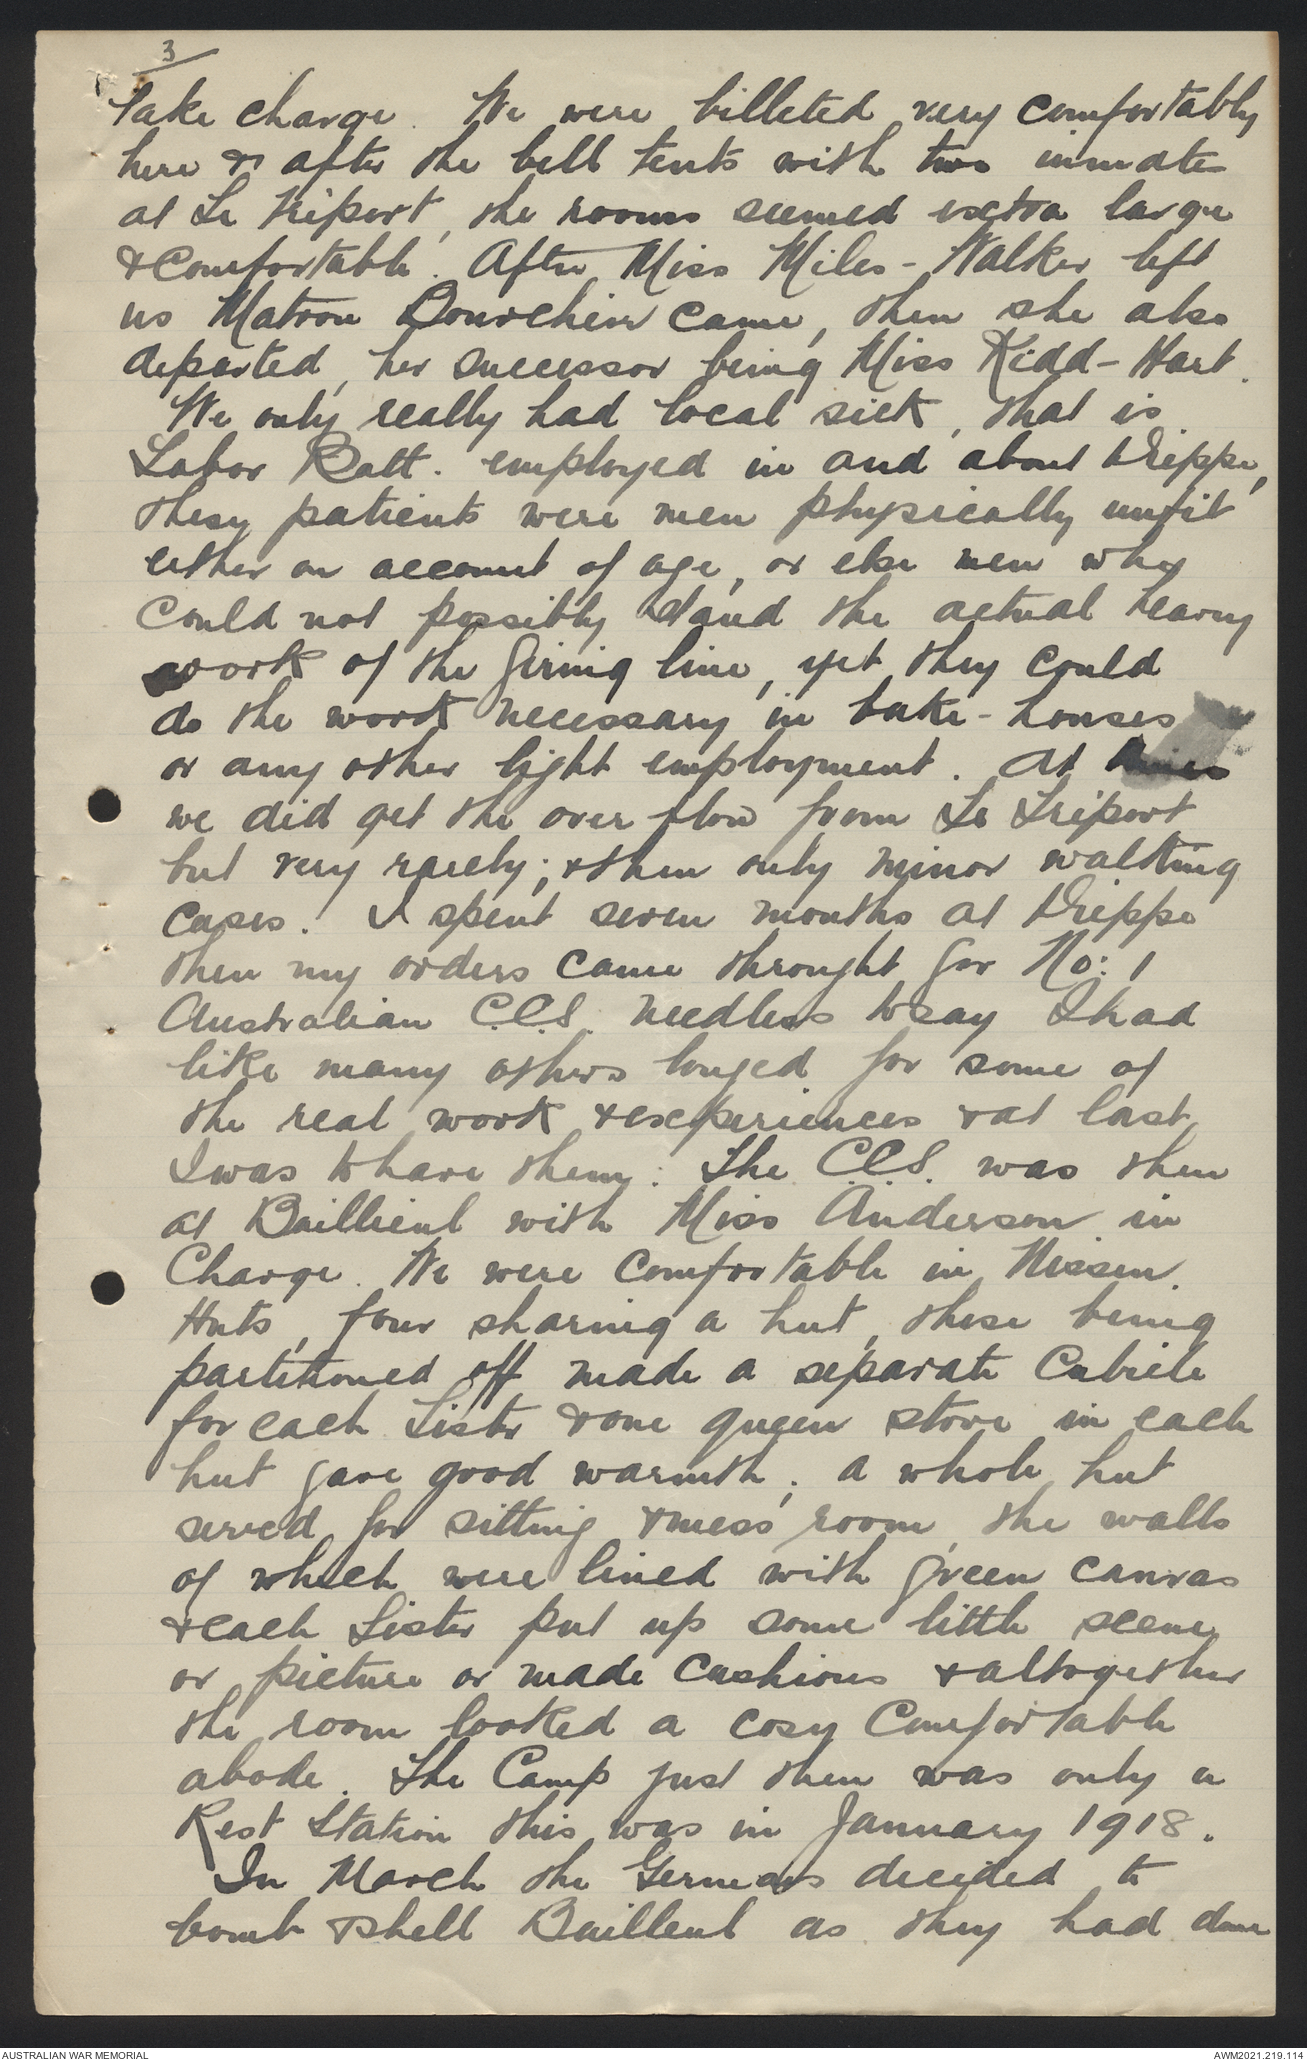 3
take charge. We were billeted very comfortably
here & after the bell tents with two inmates
at Le Triport, the rooms seemed extra large
& comfortable. After Miss Miles-Walker left
us Matron came, then she also
departed, her successor being Miss Kidd-Hart.
We only really had local sick, that is
Labor Batt. employed in and about Dieppe,
thesy patients were men physically unfit
either on account of age, or else men why
could not possibly stand the actual heavy
work of the firing line, yet they could
do the work necessary in bake-houses
or any other light employment. At times
we did get the over flow from Le Triport
but very rarely; & then only minor walking
cases. I spent seven months at Dieppe
then my orders came throught for No: 1
Australian C.C.S. needless to say I had
like many others longed for some of
the real work & experiences & at last
I was to have them. The C.C.S. was then
at Baillieul with Miss Anderson in
Charge. We were comfortable in Nissen.
Huts, four sharing a hut, these being
partitioned off made a separate Cubicle
for each Sister & one queen stove in each
hut gave good warmth; a whole hut
served for sitting & mess room, the walls
of which were lined with green canvas
& each Sister put up some little scene
or picture or made cushions & altogether
the room looked a cosy comfortable
abode. The Camp just then was only a
Rest Station this was in January 1918.
In March the Germans decided to
bomb & shell Bailleul as they had done
AUSTRALIAN WAR MEMORIAL
AWM2021.219.114